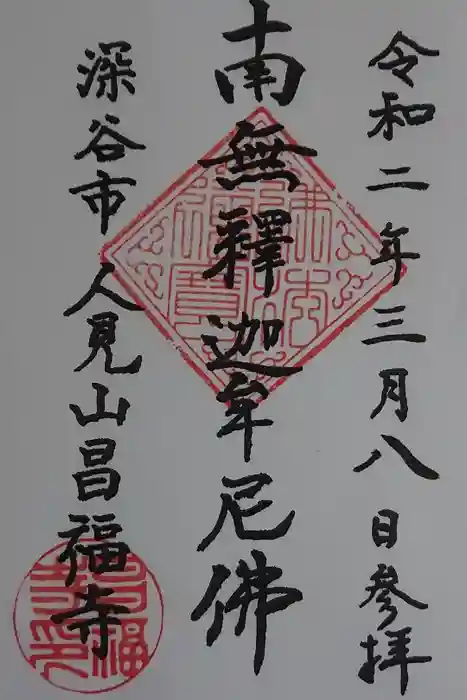 令和二年三月八日参拝
南無釋迦牟尼佛
深谷市人見山昌福寺